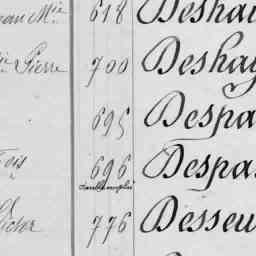 ean Mie 618 Deshai
is Pierre 700 Deshay
695 Despa
çois 696 Despa
Victor 776 Desseu